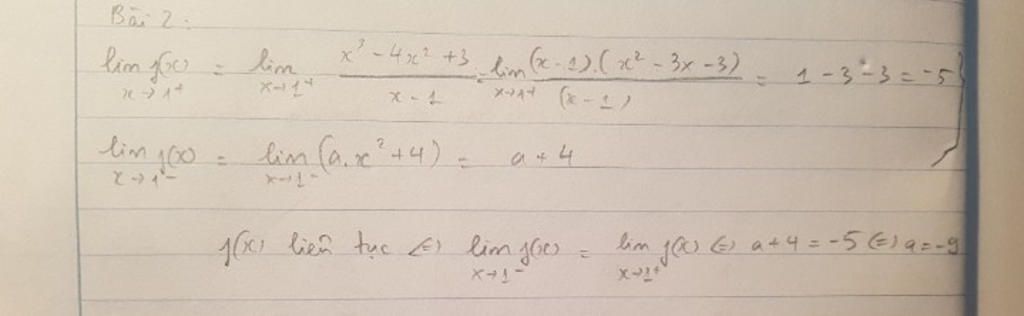 Bài 2:
lim f(x) x→1⁺ = lim x→1⁺ (x³ - 4x² + 3)/(x - 1) = lim x→1⁺ (x - 1).(x² - 3x - 3)/(x - 1) = 1 - 3 - 3 = -5
lim f(x) x→1⁻ = lim x→1⁻ (a.x² + 4) = a + 4
f(x) liên tục ⇔ lim x→1⁻ f(x) = lim x→1⁺ f(x) ⇔ a + 4 = -5 ⇔ a = -9